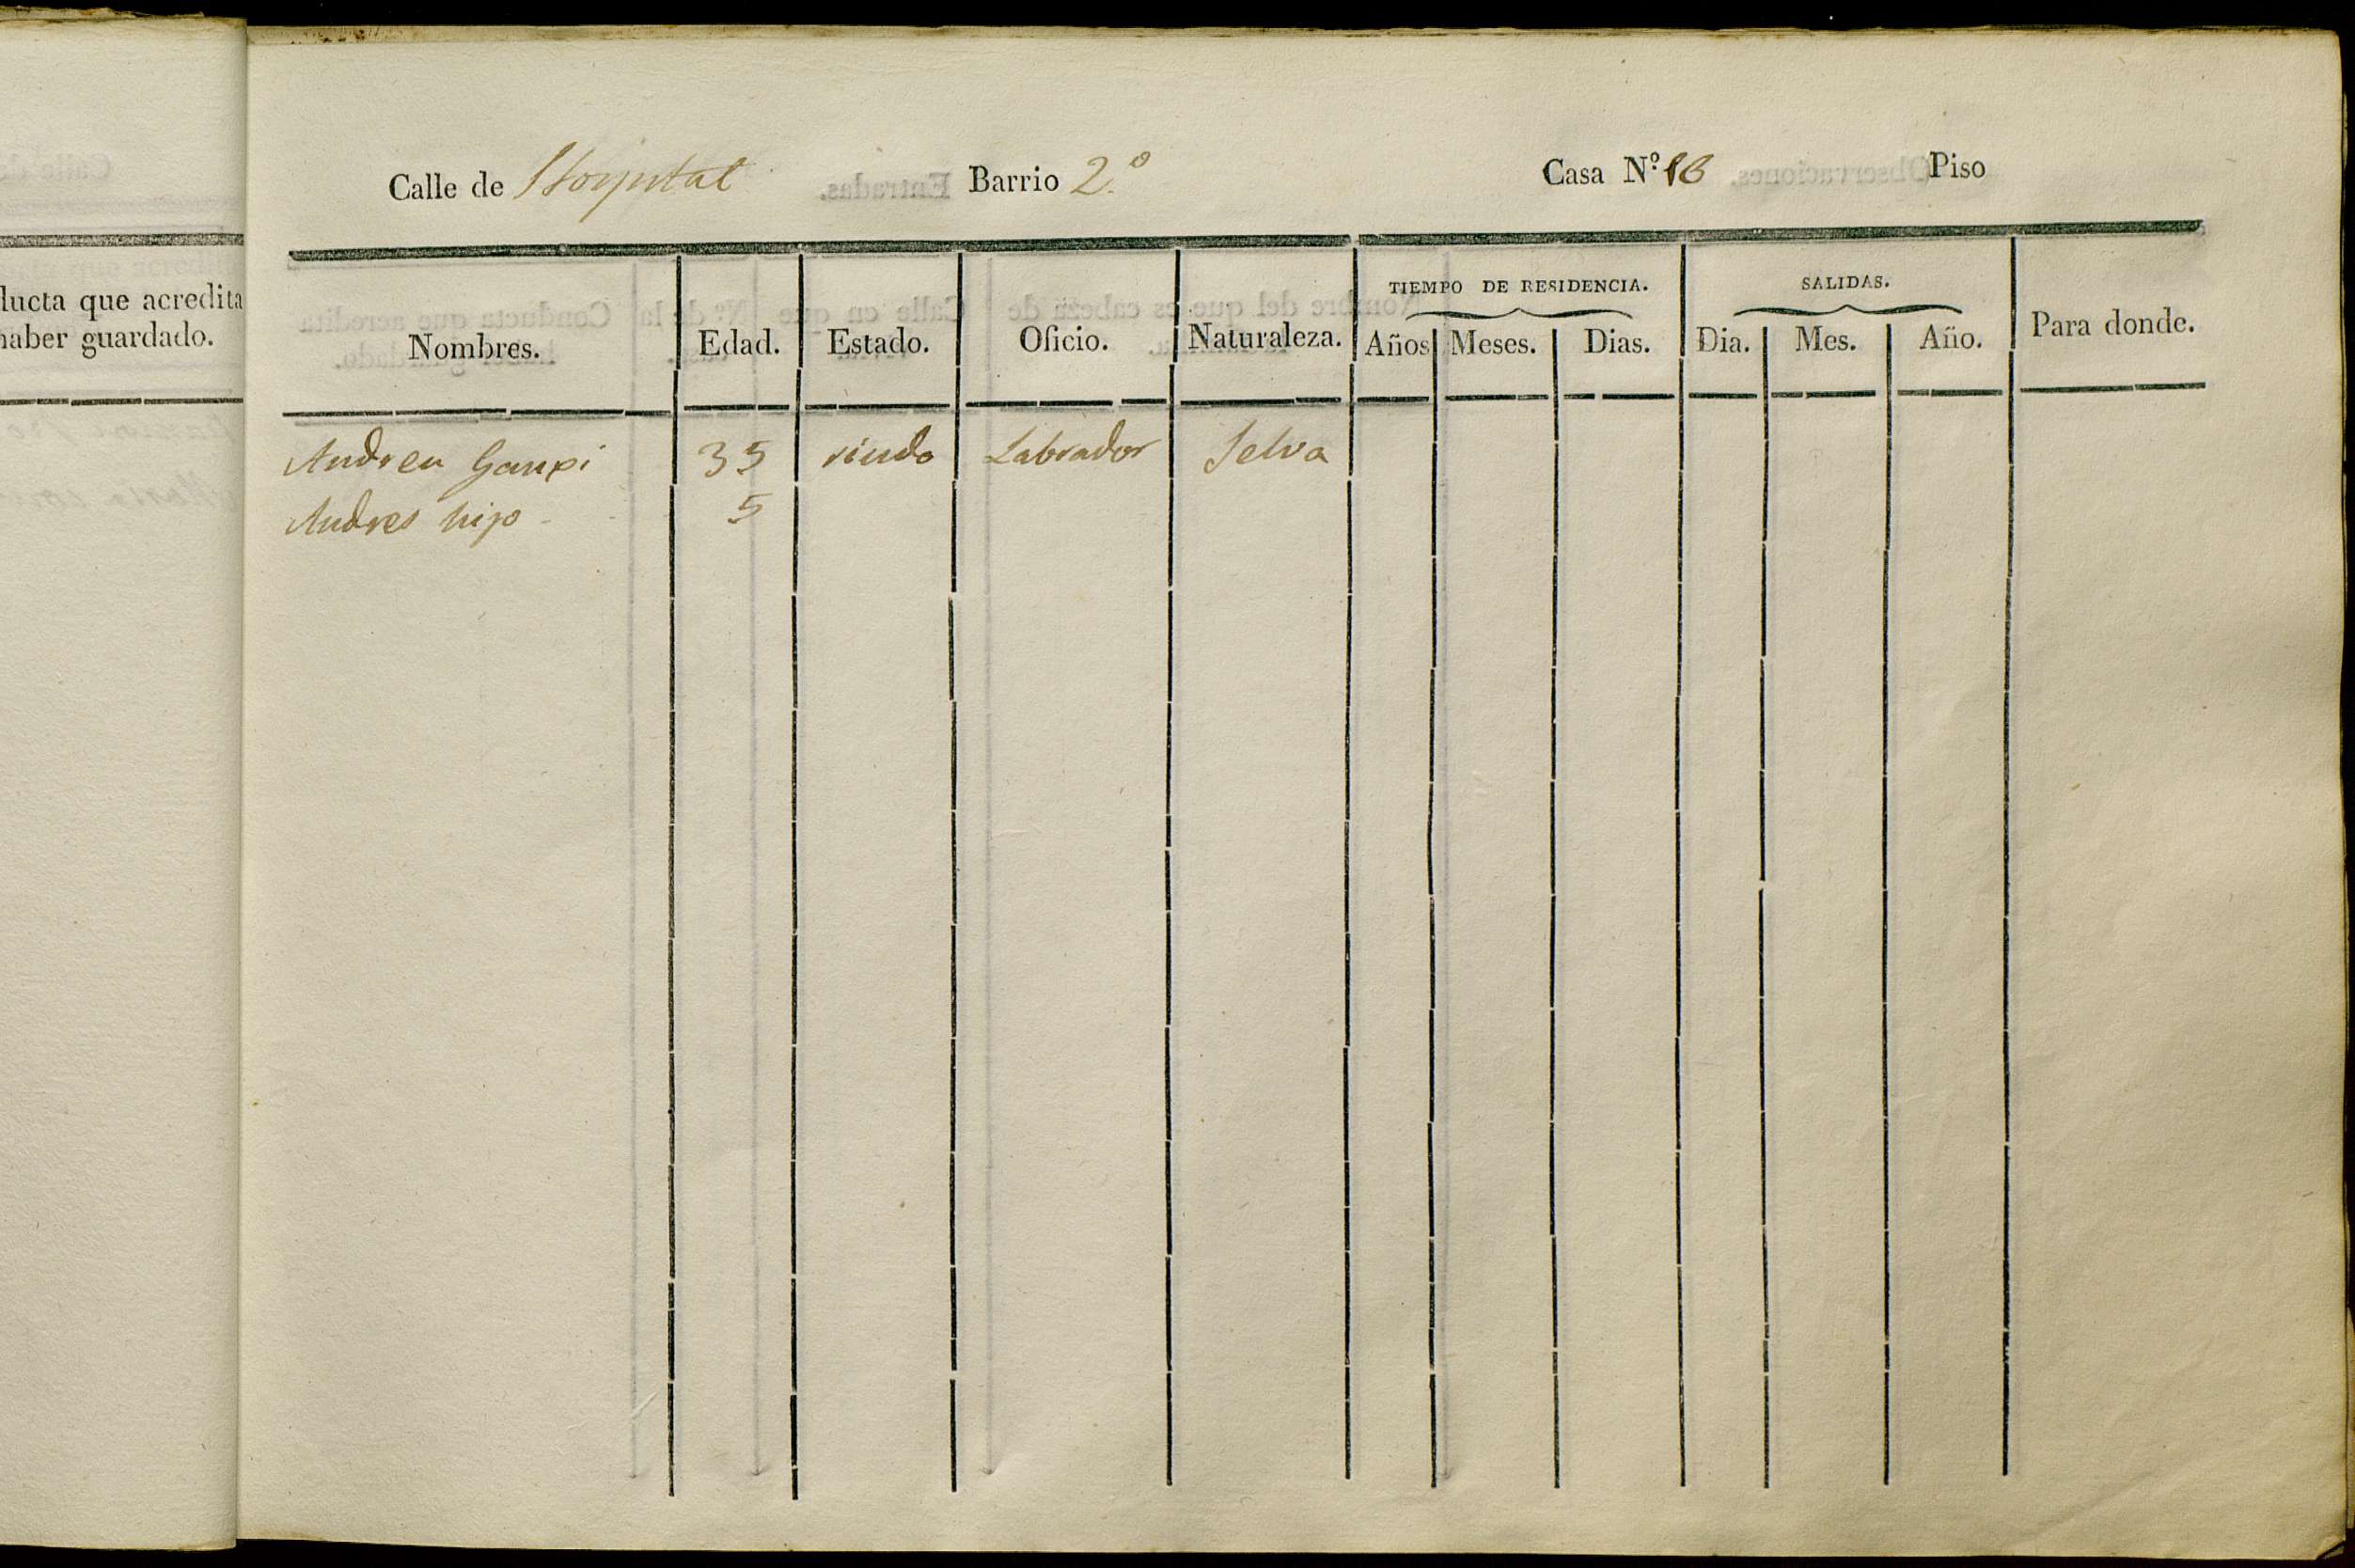 ducta que acredita
haber guardado.
Calle de Hospital Barrio 2.º Casa N.º Piso
TIEMPO DE RESIDENCIA. SALIDAS.
Nombres. Edad. Estado. Oficio. Naturaleza. Años Meses. Dias. Dia. Mes. Año. Para donde.
Andreu 35 viudo Labrador Selva
Andres hijo 5